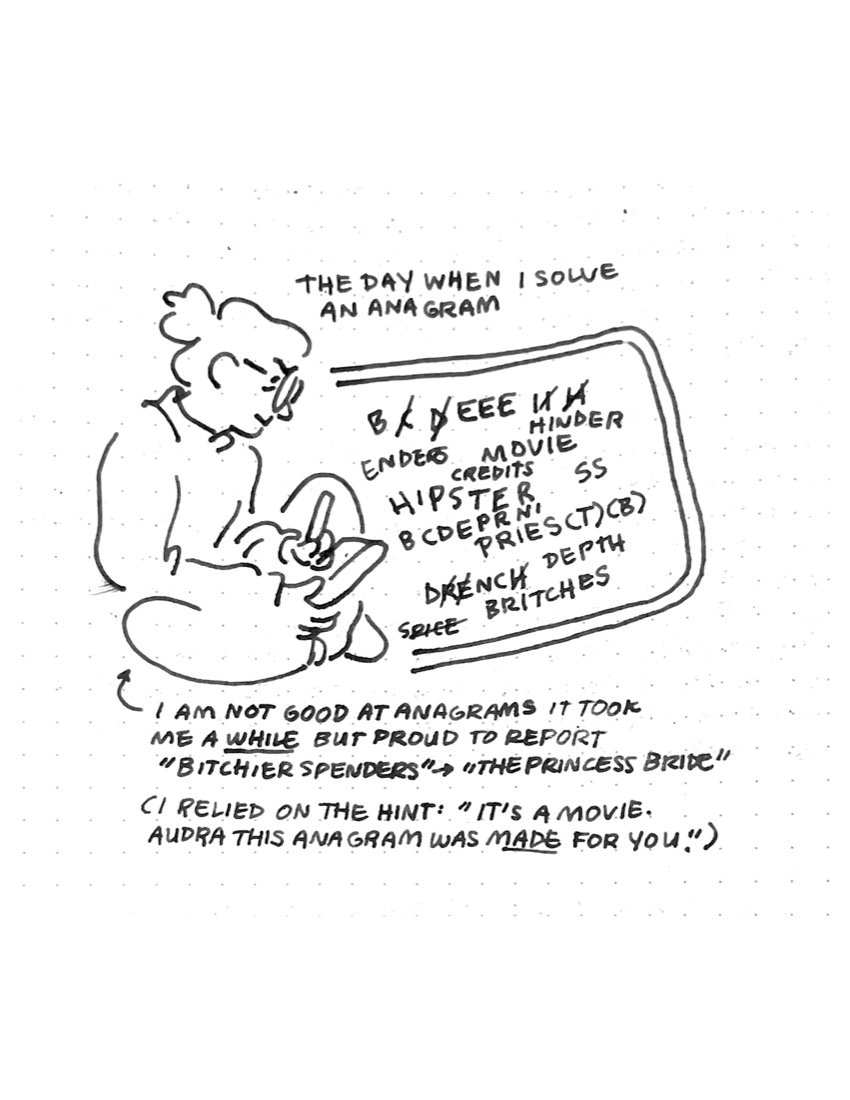 THE DAY WHEN I SOLVE
AN ANAGRAM
B C D EEE I H H
HINDER
ENDERS MOVIE
CREDITS SS
HIPSTER
BCDEPRNI
PRIES(T)(B)
DRENCH DEPTH
SPICE BRITCHES
I AM NOT GOOD AT ANAGRAMS IT TOOK
ME A WHILE BUT PROUD TO REPORT
"BITCHIER SPENDERS" → "THE PRINCESS BRIDE"
(I RELIED ON THE HINT: "IT'S A MOVIE.
AUDRA THIS ANAGRAM WAS MADE FOR YOU.")